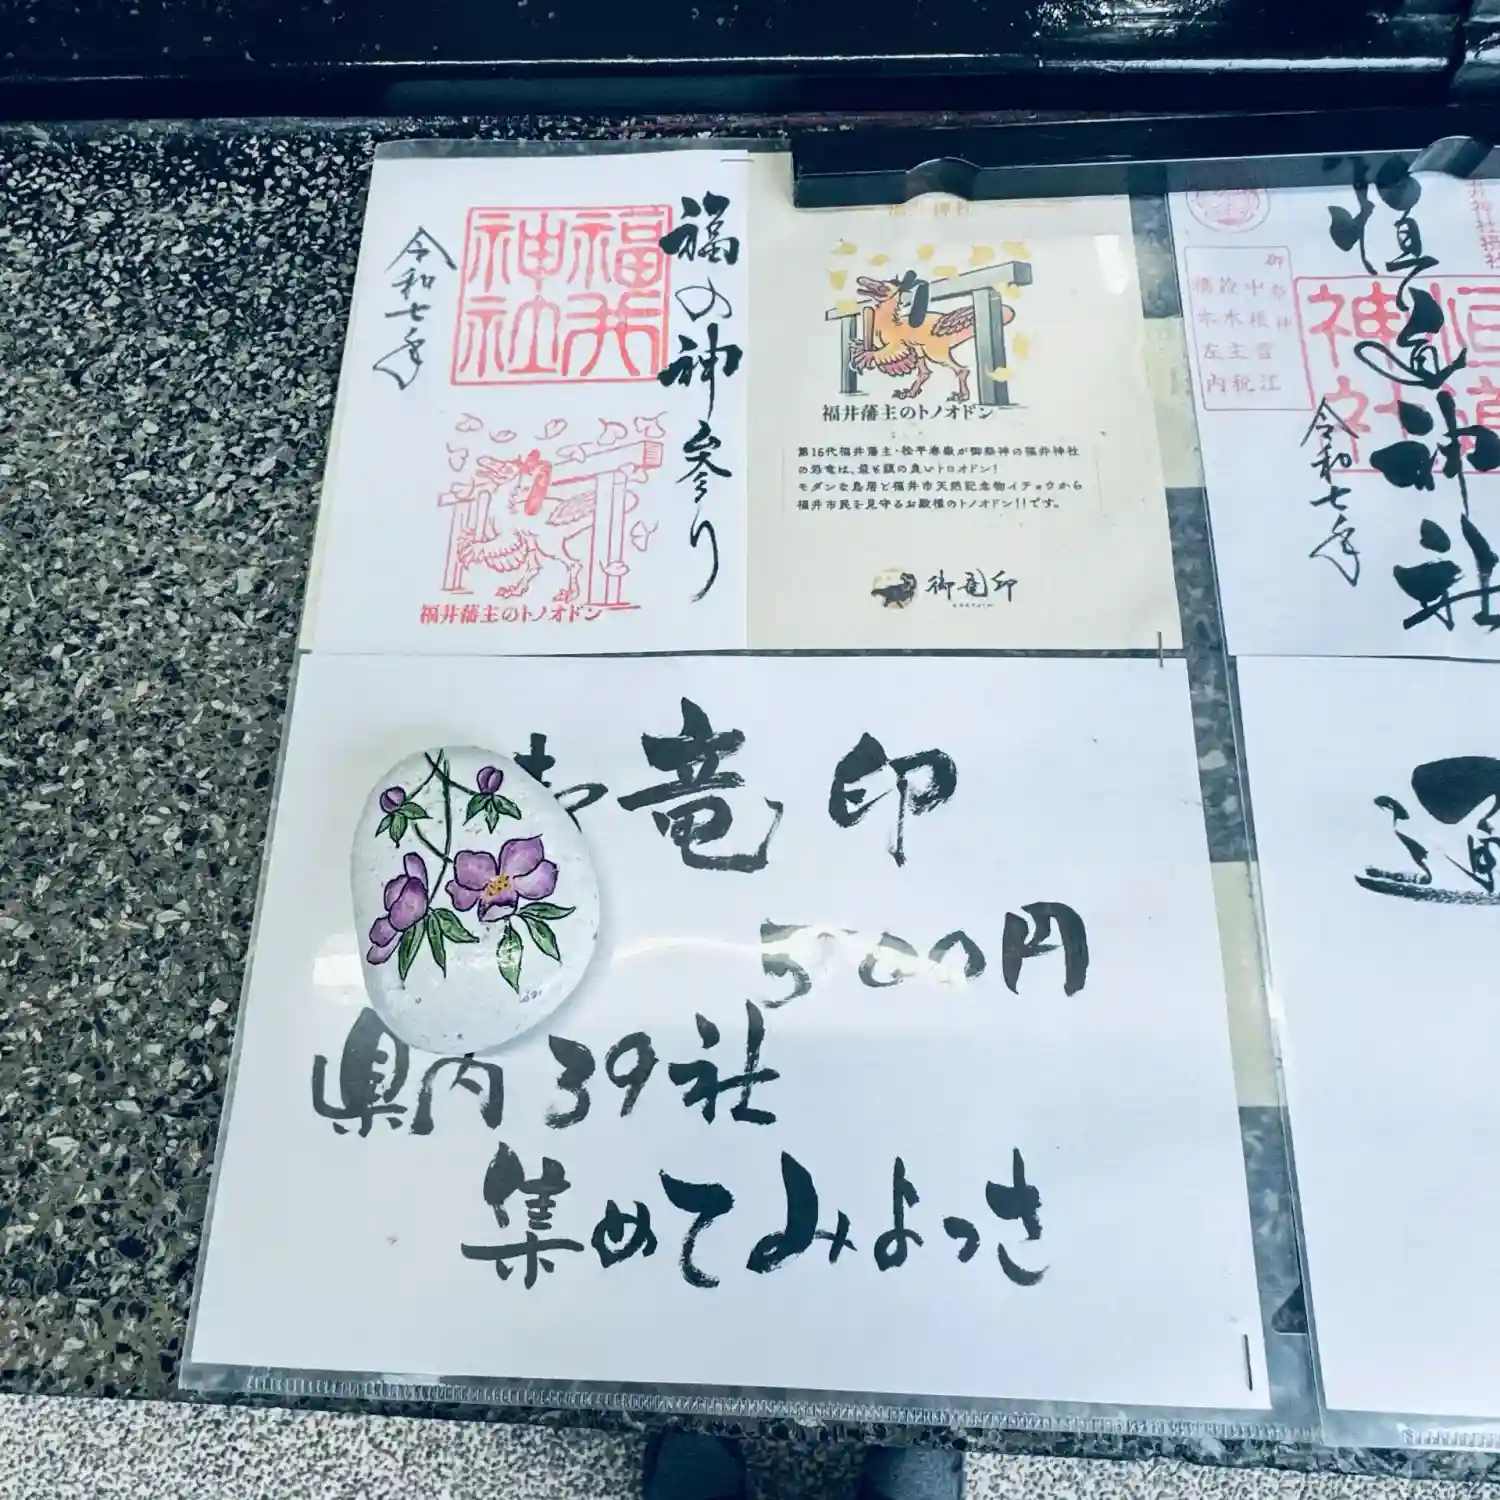 福の神参り
福井
神社
令和七年
福井藩主のトノオドン
福井神社
福井藩主のトノオドン
第16代福井藩主・松平春嶽が御祭神の福井神社
の恐竜は、最も頭の良いトロオドン！
モダンな鳥居と福井市天然記念物イチョウから
福井市民を見守るお殿様のトノオドン！！です。
御竜印
恒道神社
恒道
神社
令和七年
竜印
500円
県内39社
集めてみよっさ
通